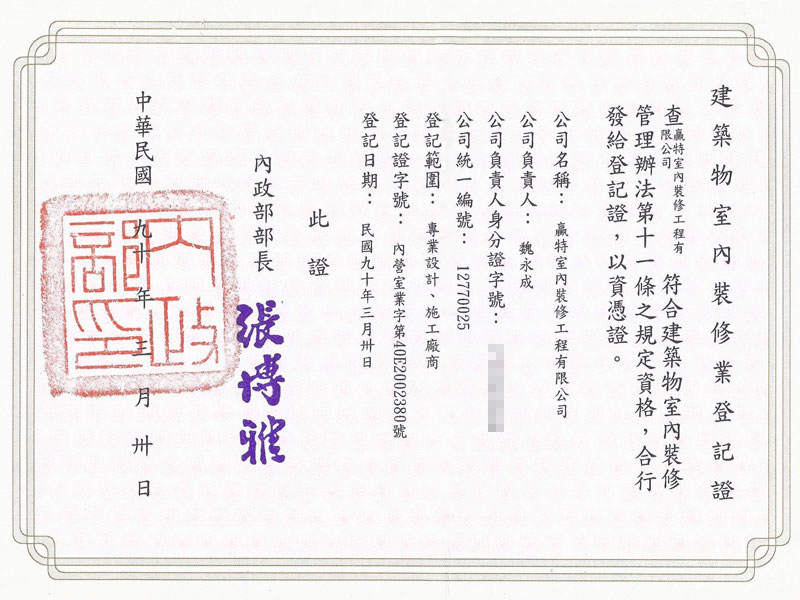 建築物室內裝修業登記證
查贏特室內裝修工程有限公司 符合建築物室內裝修
管理辦法第十一條之規定資格，合行
發給登記證，以資憑證。
公司名稱：贏特室內裝修工程有限公司
公司負責人：魏永成
公司負責人身分證字號：
公司統一編號：12770025
登記範圍：專業設計、施工廠商
登記證字號：內營室業字第40E2002380號
登記日期：民國九十年三月卅日
此證
內政部部長 張博雅
中華民國九十年三月卅日
內政部印